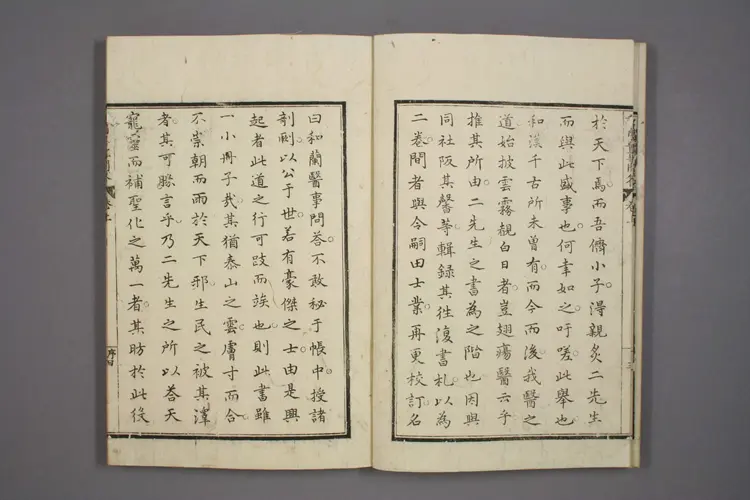 於天下焉而吾儕小子得親炙二先生
而與此盛事也何幸如之吁嗟此舉也
和漢千古所未曾有而今而後我醫之
道始披雲霧親白日者豈翅瘍醫云乎
推其所由二先生之書為之階也因與
同社阪其馨等輯錄其往復書札以為
二卷問者與今嗣田士業再更校訂名
曰和蘭醫事問荅不敢秘于帳中授諸
剞劂以公于世若有豪傑之士由是興
起者此道之行可跂而竢也則此書雖
一小冊子哉其猶泰山之雲膚寸而合
不崇朝而雨於天下邪生民之被其澤
者其可勝言乎乃二先生之所以荅天
寵靈而補聖化之萬一者其昉於此後